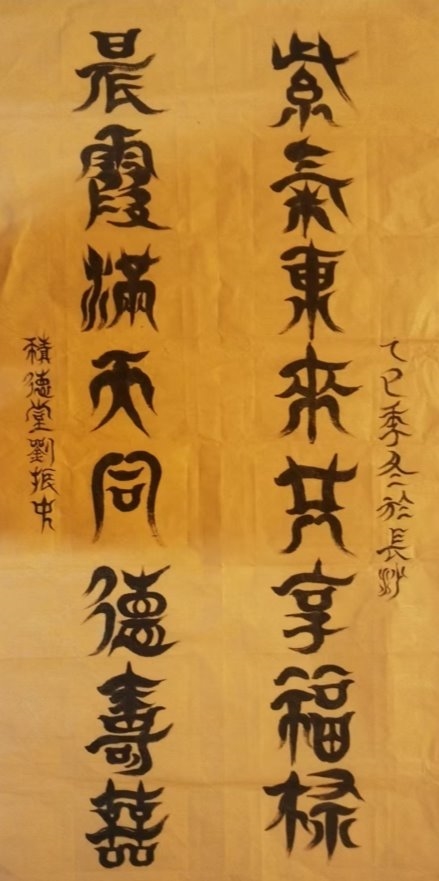 乙巳季冬於長沙
紫氣東來共享福祿
晨霞滿天同德壽囍
積德堂劉振中